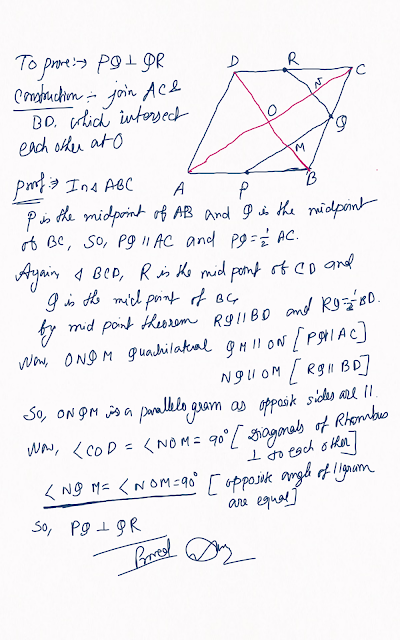 To prove:→ PQ ⊥ QR
Construction :- join AC &
BD. which intersect
each other at O
D R C
N
O
Q
M
A P B
Proof:⇒ In Δ ABC
P is the midpoint of AB and Q is the midpoint
of BC, So, PQ ॥ AC and PQ = 1/2 AC.
Again Δ BCD, R is the mid point of CD and
Q is the mid point of BC,
by mid point theorem RQ ॥ BD and RQ = 1/2 BD.
Now, ONQM Quadrilateral QM ॥ ON [PQ ॥ AC]
NQ ॥ OM [RQ ॥ BD]
So, ONQM is a parallelogram as opposite sides are ॥.
Now, ∠COD = ∠NOM = 90° [Diagonals of Rhombus
⊥ to each other]
∠NQM = ∠NOM = 90° [opposite angle of ॥gram
are equal]
So, PQ ⊥ QR
Proved